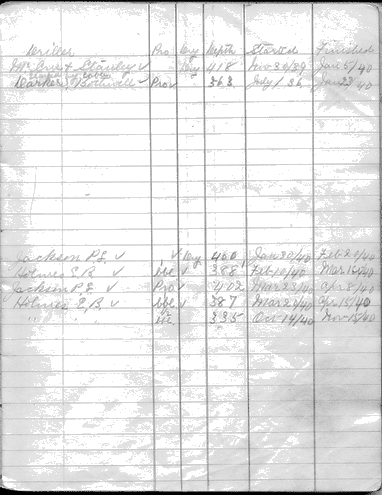 Driller Pro Dry Depth Started Finished
McCrie & Stanley ✓ Dry 418 Nov 30/39 Jan 5/40
Parker ✓ Pro ✓ 363 July / 36 Jan 23/40
Jackson P.S. ✓ ✓ Dry 400 Jan 20/40 Feb 20/40
Holmes E.B. ✓ bbl ✓ 388 Feb 10/40 Mar 15/40
Jackson P.S. ✓ Pro ✓ 402 Mar 23/40 Apr 8/40
Holmes E.B. ✓ bbl ✓ 387 Mar 21/40 Apr 15/40
" " " 395 Oct 14/40 Nov 15/40